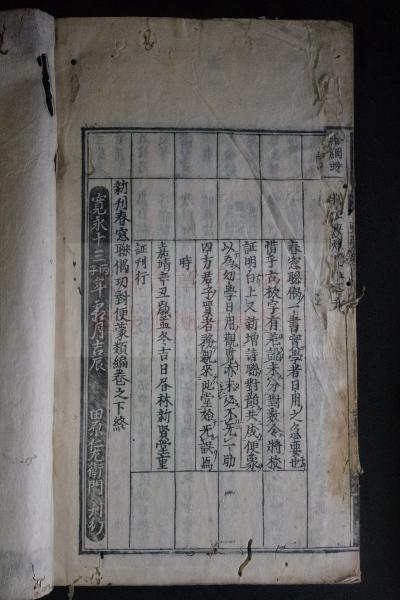 春窓聯偶一書實學者日用之急要也
惜乎古板字有差訛未分對数今將授
証明白上又新增詩聯對韻共成便蒙
以為幼學日用觀覽亦未必不无一助
四方君子買者務觀來此堂始无誤焉
時
嘉靖辛丑歲孟冬吉日居林新賢堂重
証刊行
新刊春窓聯偶巧對便蒙類編卷之下終
寛永十三丙子年霜月吉辰
田原仁左衛門刊行